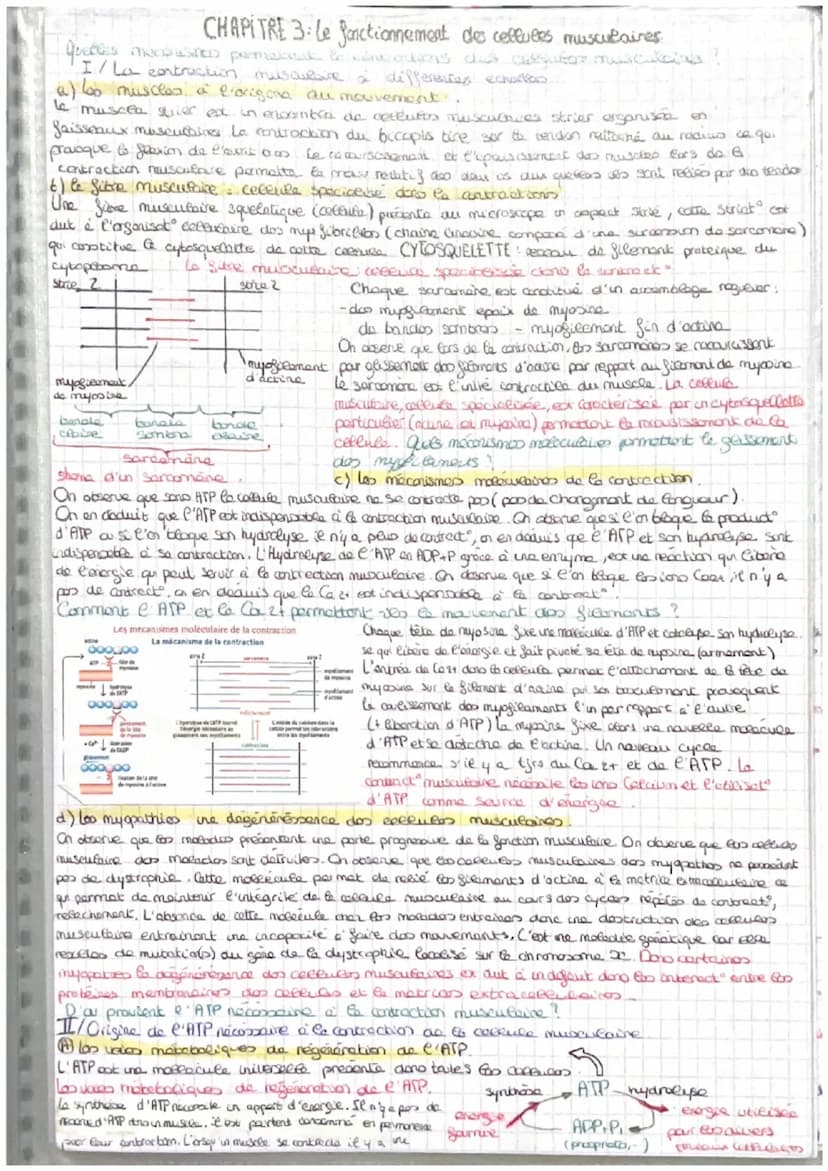 CHAPITRE 3: Le fonctionnement des cellules musculaires
Quelles mécanismes permettent la contractions des cellules musculaires ?
I / La contraction musculaire à différentes échelles
a) Les muscles à l'origine du mouvement.
Le muscle strier est un ensemble de cellules musculaires strier organisée en
faisceaux musculaires La contraction du biceps tire sur le tendon rattaché au radius ce qui
provoque la flexion de l'avant bras. Le raccourcissement et l'épaississement des muscles lors de la
contraction musculaire permette le mouv relatif des deux os auxquels ils sont reliés par des tendons
b) La fibre musculaire : cellule spécialisé dans la contractions
Une fibre musculaire squelétique (cellule) présente au microscope un aspect strié, cette striat° est
duit à l'organisat° cellulaire des myofibrilles (chaîne linéaire composé d'une succession de sarcomère)
qui constitue le cytosquelette de cette cellule CYTOSQUELETTE : réseau de filament protéique du
cytoplasme La fibre musculaire cellule spécialisée dans la contract°
strie Z strie Z
myofilament d'actine
myofilament de myosine
bande claire bande sombre bande claire
sarcomère
shéma d'un sarcomère.
Chaque sarcomère est constitué d'un assemblage régulier :
- des myofilament épais de myosine
de bandes sombres - myofilament fin d'actine
On observe que lors de la contraction, les sarcomères se raccourcissent
par glissement des filaments d'actine par rapport au filament de myosine
Le sarcomère est l'unité contractile du muscle. La cellule
musculaire, cellule spécialisée, est caractérisée par un cytosquelette
particulier (actine et myosine) permettant le raccourcissement de la
cellule. Quels mécanismes moléculaires permettent le glissement
des myofilaments ?
c) Les mécanismes moléculaires de la contraction.
On observe que sans ATP la cellule musculaire ne se contracte pas (pas de changment de longueur).
On en déduit que l'ATP est indispensable à la contraction musculaire. On observe que si l'on bloque la product°
d'ATP ou si l'on bloque son hydrolyse il n'y a plus de contract°, on en déduis que l'ATP et son hydrolyse sont
indispensable à sa contraction. L'Hydrolyse de l'ATP en ADP+P grâce à une enzyme, est une réaction qui libère
de l'énergie qui peut servir à la contraction musculaire. On observe que si l'on bloque les ions Ca2+, il n'y a
pas de contract°, on en déduis que le Ca 2+ est indispensable à la contract°.
Comment l'ATP et le Ca 2+ permettent-ils le mouvement des filaments ?
Les mécanismes moléculaire de la contraction
La mécanisme de la contraction
actine
ATP
myosine
hydrolyse de l'ATP
+ Ca²⁺
L'hydrolyse de l'ATP fournit l'énergie nécessaire au glissement des myofilaments
Chaque tête de myosine fixe une molécule d'ATP et catalyse son hydrolyse.
se qui libère de l'énergie et fait pivoté sa tête de myosine (armement)
L'entrée de Ca2+ dans la cellule permet l'attachement de la tête de
myosine sur le filament d'actine pui son basculement provoquent
le coulissement des myofilaments l'un par rapport à l'autre
(+ libération d'ATP) la myosine fixe alors une nouvelle molécule
d'ATP et se détache de l'actine. Un nouveau cycle
recommence s'il y a tjrs du Ca 2+ et de l'ATP. La
contract° musculaire nécessite les ions Calcium et l'utilisat°
d'ATP comme source d'énergie
d) Les myopathies une dégénérescence des cellules musculaires.
On observe que les malades présentant une perte progressive de la fonction musculaire On observe que les cellules
musculaire des malades sont détruites. On observe que les cellules musculaires des myopathes ne possèdent
pas de dystrophie. Cette molécule permet de relié les filaments d'actine à la matrice extracellulaire ce
qui permet de maintenir l'intégrité de la cellule musculaire au cours des cycles répétés de contract°,
relâchement. L'absence de cette molécule chez les malades entraînes donc une destruction des cellules
musculaire entraînant une incapacité à faire des mouvements. C'est ne maladie génétique car elle
résultes de mutatio(s) du gène de la dystrophie localisé sur le chromosome X. Dans certaines
myopathies la dégénérescence des cellules musculaires es duit à un défaut dans les interact° entre les
protéines membranaires des cellules et la matrices extracellulaires.
D'où provient l'ATP nécessaire à la contraction musculaire ?
II / Origine de l'ATP nécessaire à la contraction de la cellule musculaire
A) Les voies métaboliques de régénération de l'ATP.
L'ATP est une molécule universelle présente dans toutes les cellules.
Les voies métaboliques de régénération de l'ATP.
La synthèse d'ATP nécessite un apport d'énergie. Il n'y a pas de
réserve d'ATP dans un muscle, il est pourtant consommé en permanence
pour leur contraction. Lorsqu'un muscle se contracte il y a une
synthèse ATP hydrolyse
énergie fournie
ADP+Pi
(phosphate,-)
énergie utilisée
pour les divers